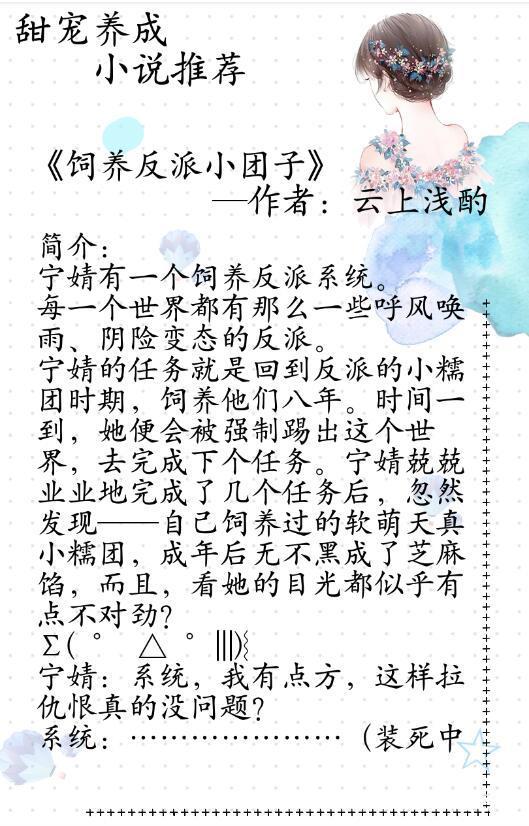 甜宠养成
小说推荐
《饲养反派小团子》
—作者：云上浅酌
简介：
宁婧有一个饲养反派系统。
每一个世界都有那么一些呼风唤
雨、阴险变态的反派。
宁婧的任务就是回到反派的小糯
团时期，饲养他们八年。时间一
到，她便会被强制踢出这个世
界，去完成下个任务。宁婧兢兢
业业地完成了几个任务后，忽然
发现——自己饲养过的软萌天真
小糯团，成年后无不黑成了芝麻
馅，而且，看她的目光都似乎有
点不对劲？
Σ( ° △ °|||)︴
宁婧：系统，我有点方，这样拉
仇恨真的没问题？
系统：…………………（装死中